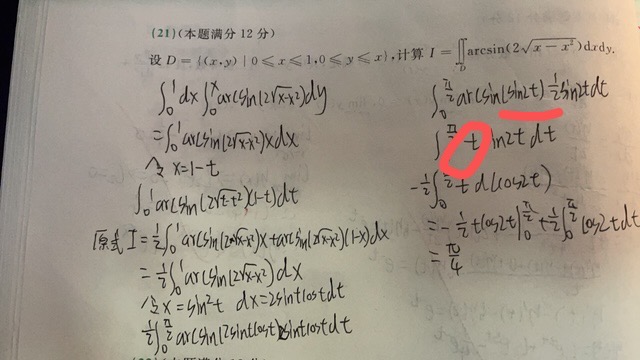 (21)(本题满分 12 分)
设 D={(x,y)|0≤x≤1,0≤y≤x},计算 I=∬_D arcsin(2√(x-x²))dxdy.
∫₀¹dx∫₀ˣarcsin(2√(x-x²))dy
=∫₀¹arcsin(2√(x-x²))xdx
令 x=1-t
∫₀¹arcsin(2√(t-t²))(1-t)dt
原式 I=½∫₀¹arcsin(2√(x-x²))x+arcsin(2√(x-x²))(1-x)dx
=½∫₀¹arcsin(2√(x-x²))dx
令x=sin²t dx=2sintcostdt
½∫₀^(π/2) arcsin(2sintcost)2sintcostdt
∫₀^(π/2) arcsin(sin2t)½sin2tdt
∫₀^(π/2) t sin2t dt
-½∫₀^(π/2) t d(cos2t)
=-½tcos2t|₀^(π/2)+½∫₀^(π/2) cos2tdt
=π/4